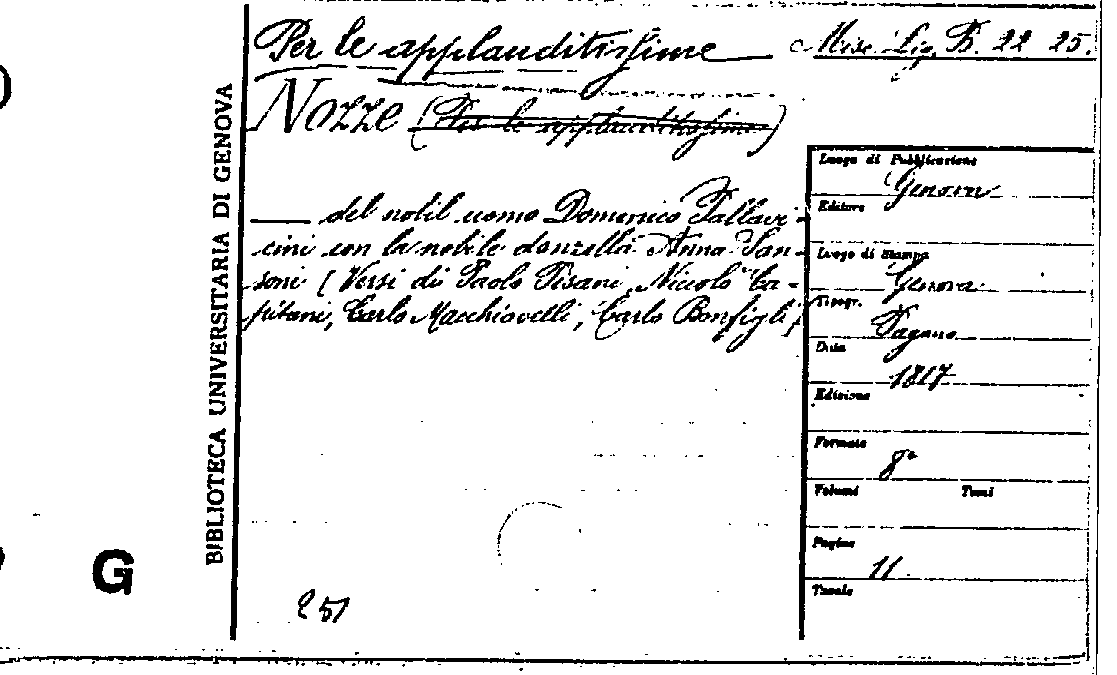 Per le applauditissime
Misc. Lig. B. 22 25.
Nozze (Per le applauditissime)
___ del nobil uomo Domenico Pallavi-
cini con la nobile donzella Anna San-
soni (Versi di Paolo Pisani, Nicolò Ca-
pitani, Carlo Macchiavelli, Carlo Bonfigli)
Luogo di Pubblicazione
Genova
Editore
Luogo di Stampa
Genova
Tipogr.
Pagano
Data
1817
Edizione
Formato
8°
Volumi Tomi
Pagine
11
Tavole
251
BIBLIOTECA UNIVERSITARIA DI GENOVA
G